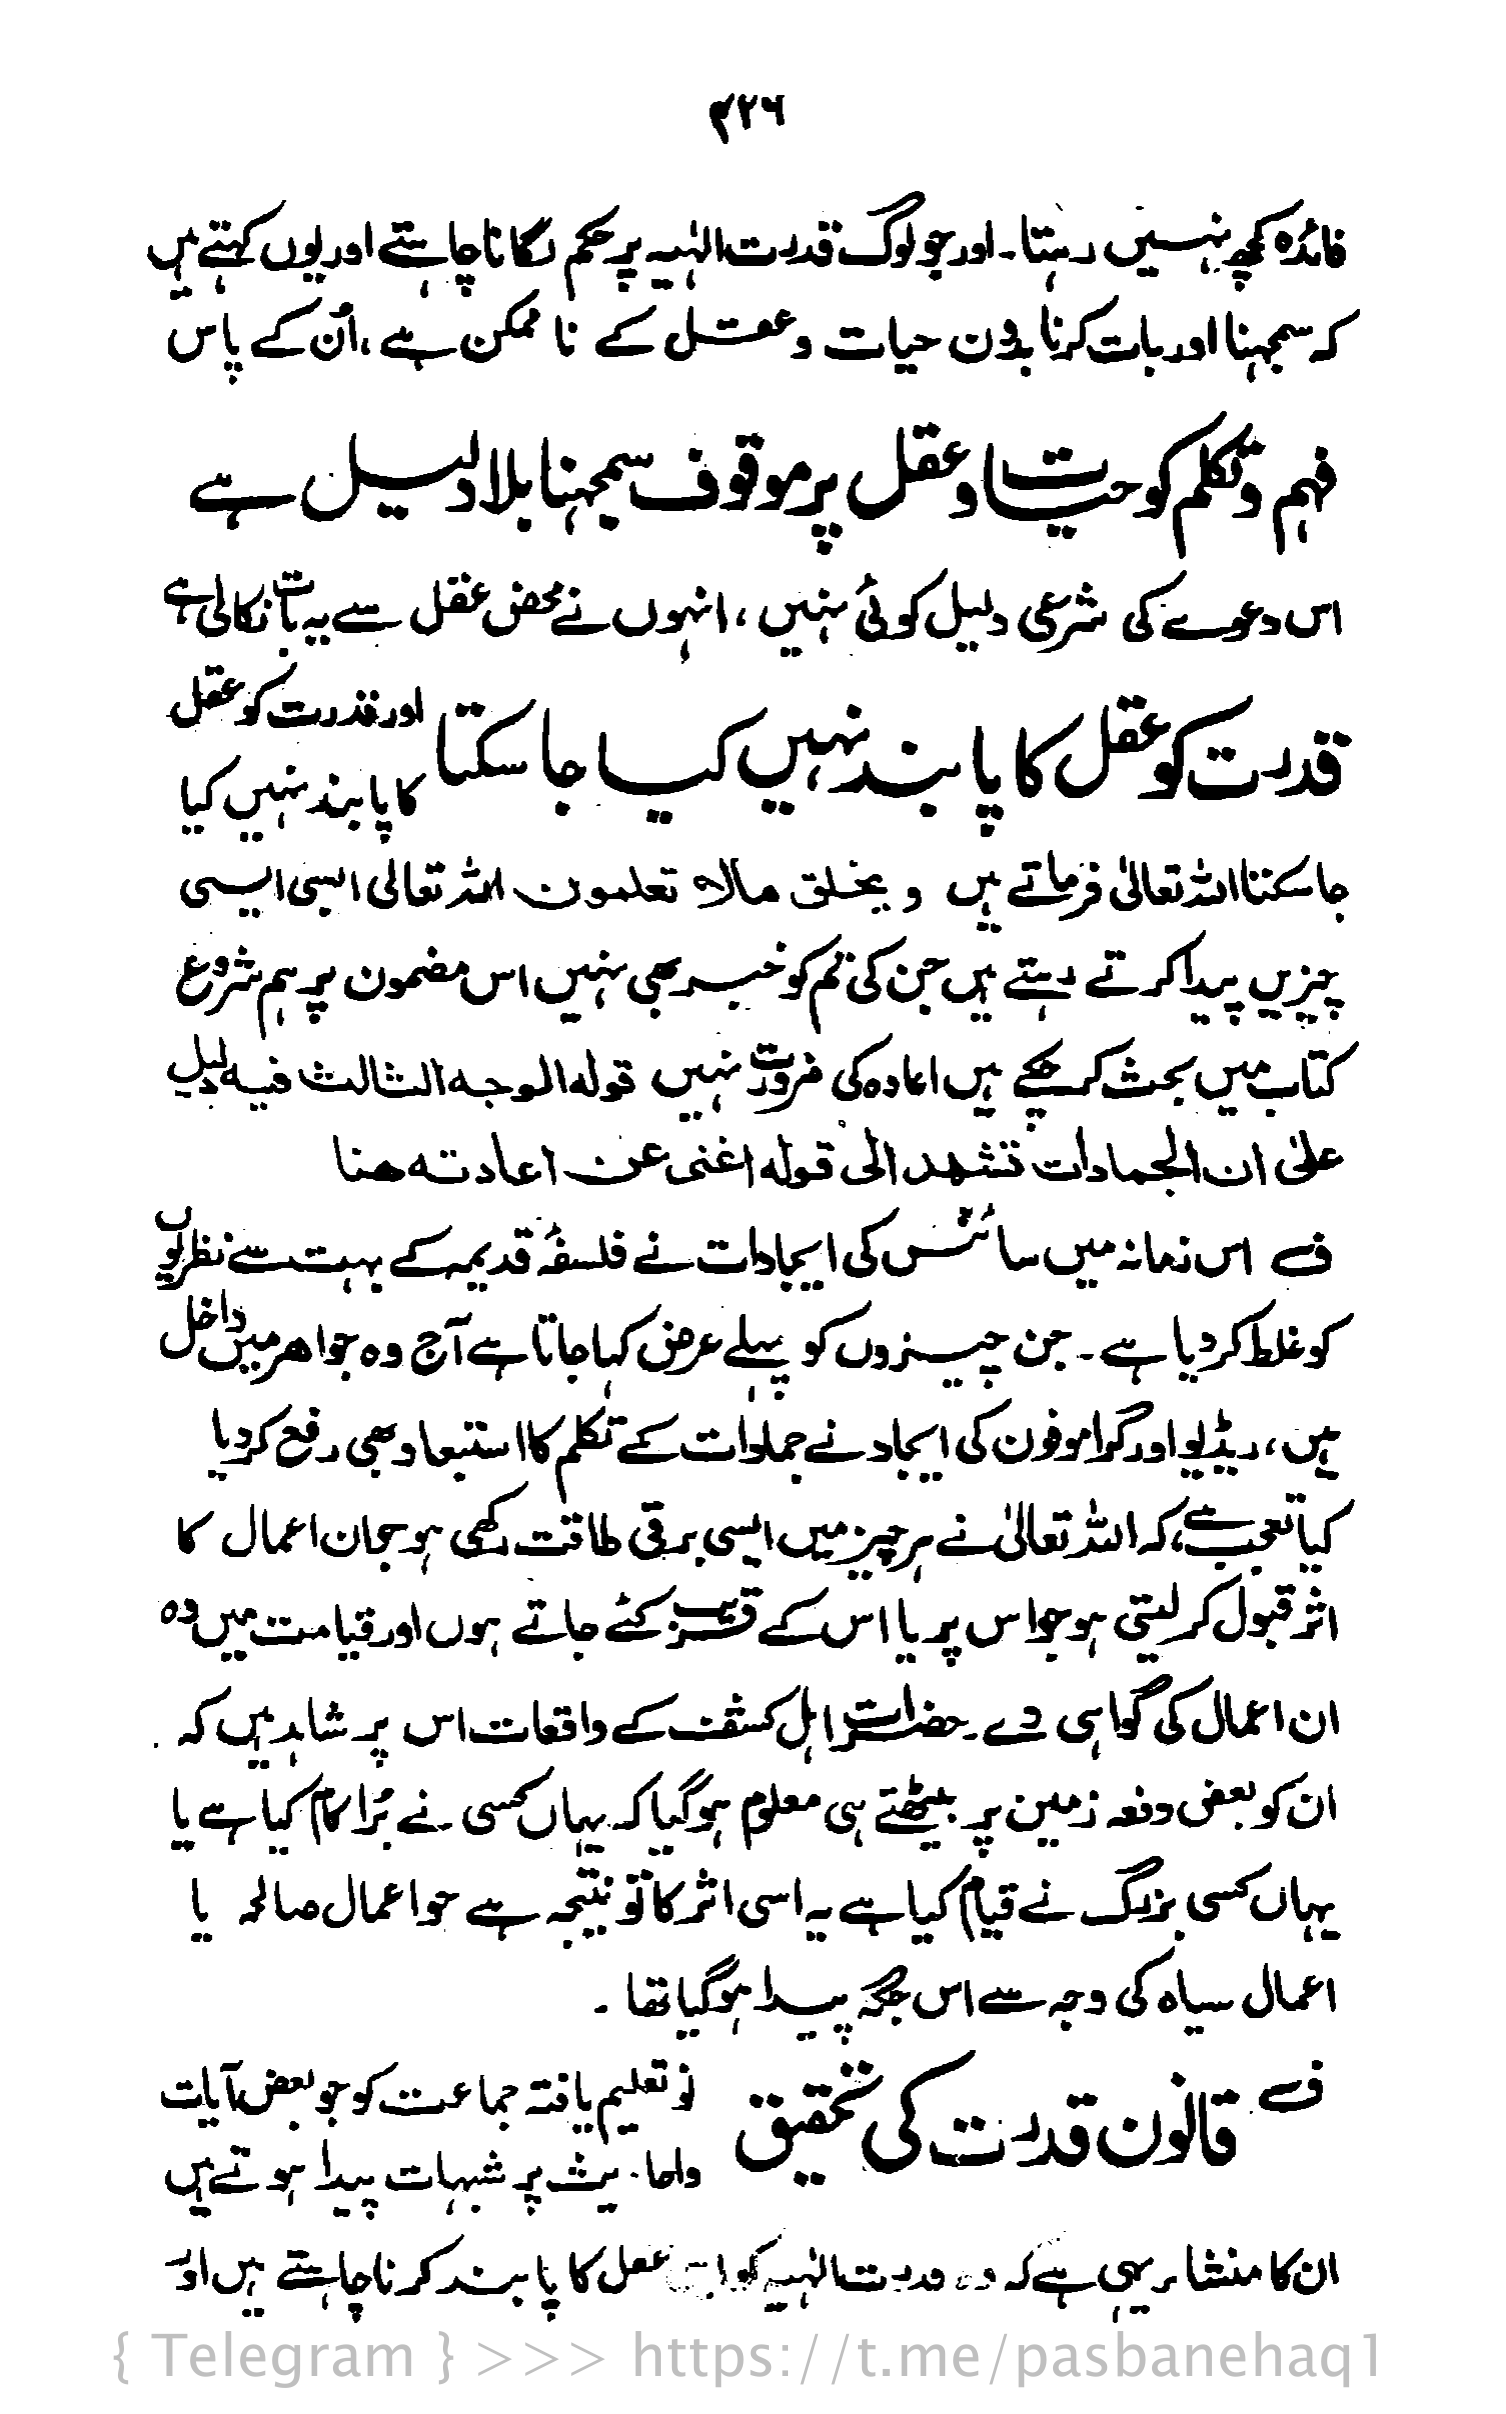 ۴۲۶
فائدہ کچھ نہیں رہتا۔ اور جو لوگ قدرت الہٰیہ پر حکم لگانا چاہتے اور یوں کہتے ہیں
کہ سمجہنا اور بات کرنا بدون حیات و عقل کے نا ممکن ہے، اُن کے پاس
فہم و تکلم کو حیات و عقل پر موقوف سمجہنا بلا دلیل ہے
اس دعوے کی شرعی دلیل کوئی نہیں، انہوں نے محض عقل سے یہ بات نکالی ہے
قدرت کو عقل کا پابند نہیں کیا جا سکتا
اور قدرت کو عقل
کا پابند نہیں کیا
جا سکتا اللہ تعالیٰ فرماتے ہیں و یخلق مالا تعلمون اللہ تعالی ایسی ایسی
چیزیں پیدا کرتے رہتے ہیں جن کی تم کو خبر بھی نہیں اس مضمون پر ہم شروع
کتاب میں بحث کر چکے ہیں اعادہ کی ضرورت نہیں قولہ الوجہ الثالث فیہ دلیل
علیٰ ان الجمادات تشہد الیٰ قولہ اغنی عن اعادتہ ھنا
ف اس زمانہ میں سائنس کی ایجادات نے فلسفۂ قدیمہ کے بہت سے نظریوں
کو غلط کر دیا ہے۔ جن چیزوں کو پہلے عرض کہا جاتا ہے آج وہ جواھر میں داخل
ہیں، ریڈیو اور گراموفون کی ایجاد نے جمادات کے تکلم کا استبعاد بھی رفع کر دیا
کیا تعجب ہے، کہ اللہ تعالیٰ نے ہر چیز میں ایسی برقی طاقت رکھی ہو جو ان اعمال کا
اثر قبول کر لیتی ہو جو اس پر یا اس کے قریب کئے جاتے ہوں اور قیامت میں وہ
ان اعمال کی گواہی دے۔ حضرات اہل کشف کے واقعات اس پر شاہد ہیں کہ
ان کو بعض دفعہ زمین پر بیٹھتے ہی معلوم ہو گیا کہ یہاں کسی نے بُرا کام کیا ہے یا
یہاں کسی بزرگ نے قیام کیا ہے یہ اسی اثر کا تو نتیجہ ہے جو اعمال صالحہ یا
اعمال سیاہ کی وجہ سے اس جگہ پیدا ہو گیا تھا۔
ف قانون قدرت کی تحقیق
نو تعلیم یافتہ جماعت کو جو بعض آیات
واحادیث پر شبہات پیدا ہوتے ہیں
ان کا منشا یہی ہے کہ وہ قدرت الہٰیہ کو اپنی عقل کا پابند کرنا چاہتے ہیں اور
{ Telegram } >>> https://t.me/pasbanehaq1